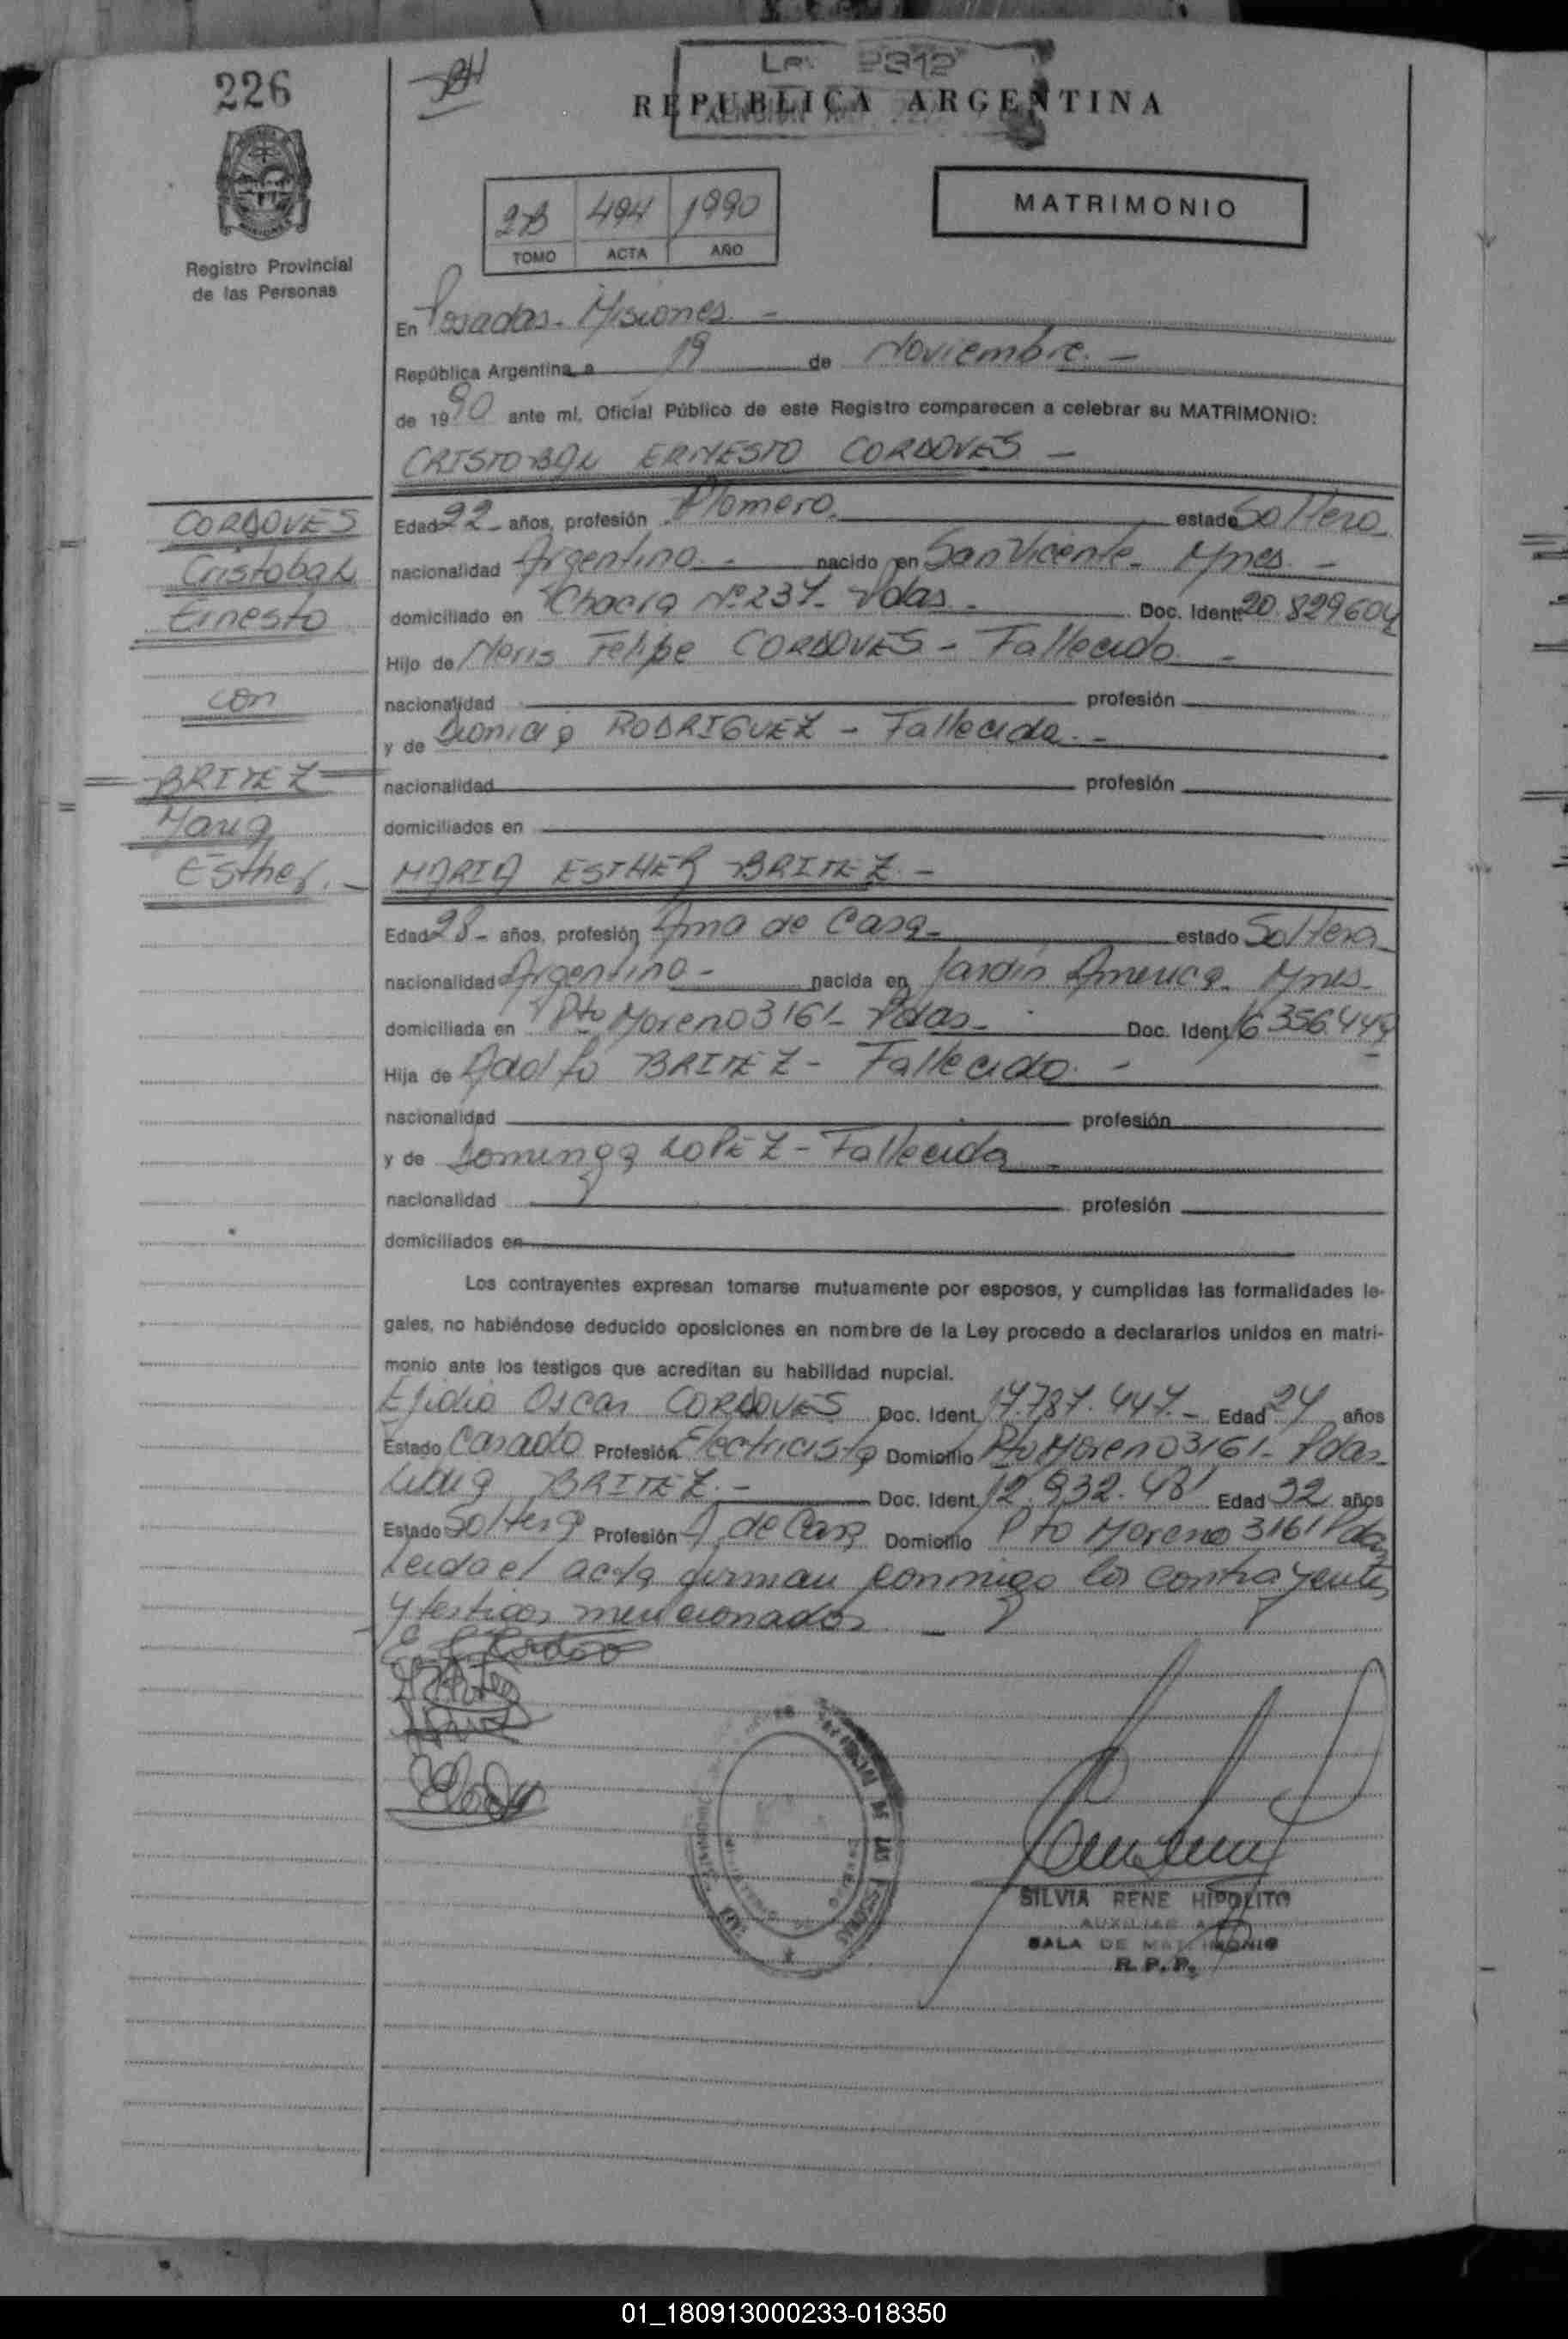 226
Ley 2312
REPUBLICA ARGENTINA
2B 494 1990
TOMO ACTA AÑO
MATRIMONIO
Registro Provincial
de las Personas
En Posadas. Misiones. -
República Argentina, a 19 de Noviembre. -
de 1990 ante mí, Oficial Público de este Registro comparecen a celebrar su MATRIMONIO:
CRISTOBAL ERNESTO CORDOVES -
CORDOVES
Cristobal
Ernesto
con
BRITEZ
Maria
Esther. -
Edad 22 - años, profesión Plomero. estado Soltero.
nacionalidad Argentina. - nacido en San Vicente. Mnes. -
domiciliado en Chacra Nº 237- Pdas. Doc. Ident. 20.829604
Hijo de Neris Felipe CORDOVES - Fallecido -
nacionalidad profesión
y de Dionicia RODRIGUEZ - Fallecida. -
nacionalidad profesión
domiciliados en
MARIA ESTHER BRITEZ. -
Edad 28 - años, profesión Ama de Casa - estado Soltera
nacionalidad Argentina - nacida en Jardín America. Mnes.
domiciliada en Pto Moreno 3161- Pdas. Doc. Ident. 16356.449
Hija de Adolfo BRITEZ - Fallecido. -
nacionalidad profesión
y de Dominga LOPEZ - Fallecida -
nacionalidad profesión
domiciliados en
Los contrayentes expresan tomarse mutuamente por esposos, y cumplidas las formalidades le-
gales, no habiéndose deducido oposiciones en nombre de la Ley procedo a declararlos unidos en matri-
monio ante los testigos que acreditan su habilidad nupcial.
Ejidio Oscar CORDOVES Doc. Ident. 17.787.447. - Edad 24 años
Estado Casado Profesión Electricista Domicilio Pto Moreno 3161- Pdas.
BRITEZ. - Doc. Ident. 12.932.481 Edad 32 años
Estado Soltera Profesión A. de Casa Domicilio Pto Moreno 3161 Pdas
Leida el acta firman conmigo los contrayentes
y testigos mencionados. -
SILVIA RENE HIPOLITO
AUXILIAR
SALA DE MATRIMONIO
R. P. P.
01_180913000233-018350